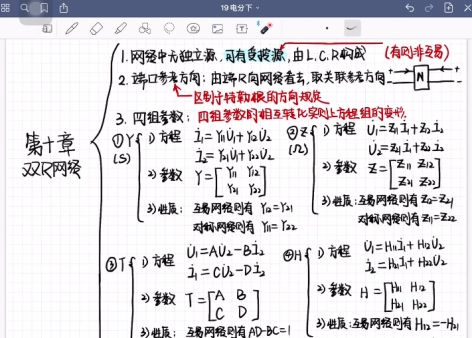 19 电分下
1. 网络中无独立源, 可有受控源, 由L.C.R构成 (有则非互易)
2. 端口参考方向: 由端口向网络看去, 取关联参考方向 N
区别于特勒根的方向规定
3. 四组参数: 四组参数的相互转化实则上方程组的变形
第十章
双口网络
①Y (S)
1) 方程 İ₁=Y₁₁U̇₁+Y₁₂U̇₂
İ₂=Y₂₁U̇₁+Y₂₂U̇₂
2) 参数 Y=[Y₁₁ Y₁₂
Y₂₁ Y₂₂]
3) 性质: 互易网络则有 Y₁₂=Y₂₁
对称网络则有 Y₁₁=Y₂₂
②Z (Ω)
1) 方程 U̇₁=Z₁₁İ₁+Z₁₂İ₂
U̇₂=Z₂₁İ₁+Z₂₂İ₂
2) 参数 Z=[Z₁₁ Z₁₂
Z₂₁ Z₂₂]
3) 性质: 互易网络则有 Z₁₂=Z₂₁
对称网络则有 Z₁₁=Z₂₂
③T
1) 方程 U̇₁=AU̇₂-Bİ₂
İ₁=CU̇₂-Dİ₂
2) 参数 T=[A B
C D]
3) 性质: 互易网络则有 AD-BC=1
④H
1) 方程 U̇₁=H₁₁İ₁+H₁₂U̇₂
İ₂=H₂₁İ₁+H₂₂U̇₂
2) 参数 H=[H₁₁ H₁₂
H₂₁ H₂₂]
3) 性质: 互易网络则有 H₁₂=-H₂₁